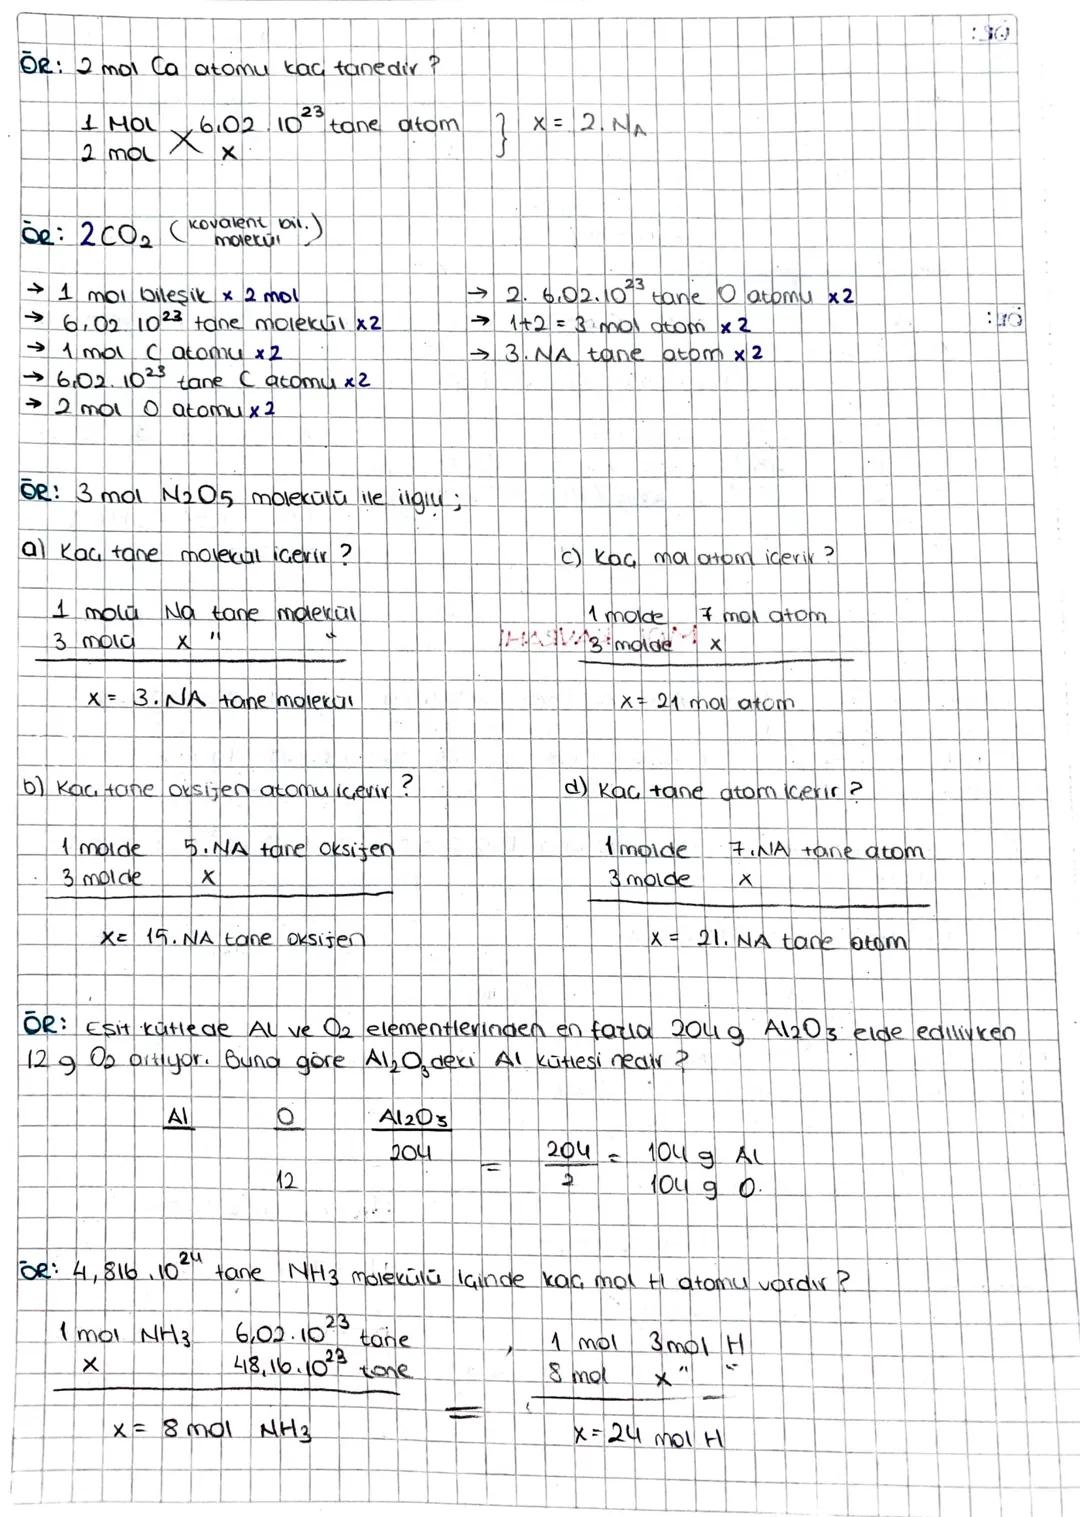 ÖR: 2 mol Ca atomu kaç tanedir?
1 Mol 6,02.10²³ tane atom } x = 2.NA
2 mol x
ÖR: 2CO₂ (kovalent bil. molekül)
→ 1 mol bileşik x 2 mol
→ 6,02 10²³ tane molekül x2
→ 1 mol C atomu x2
→ 6,02.10²³ tane C atomu x2
→ 2 mol O atomu x2
→ 2. 6,02.10²³ tane O atomu x2
→ 1+2 = 3 mol atom x 2
→ 3.NA tane atom x2
ÖR: 3 mol N2O5 molekülü ile ilgili;
a) Kaç tane molekül içerir?
1 molü Na tane molekül
3 molü x " "
x = 3.NA tane molekül
b) Kaç tane oksijen atomu içerir?
1 molde 5.NA tane oksijen
3 molde x
x= 15.NA tane oksijen
c) Kaç mol atom içerir?
1 molde 7 mol atom
3 molde x
x= 21 mol atom
d) Kaç tane atom içerir?
1 molde 7.NA tane atom
3 molde x
x = 21.NA tane atom
ÖR: Eşit kütlede Al ve O2 elementlerinden en fazla 204 g Al2O3 elde edilirken
12 g O2 artıyor. Buna göre Al₂O₃ deki Al kütlesi nedir?
Al O Al2O3
204 = 204/2 = 104 g Al
12 104 g O.
ÖR: 4,816.10²⁴ tane NH3 molekülü içinde kaç mol H atomu vardır?
1 mol NH3 6,02.10²³ tane
x 48,16.10²³ tane
x = 8 mol NH3 =
, 1 mol 3 mol H
8 mol x " "
x = 24 mol H